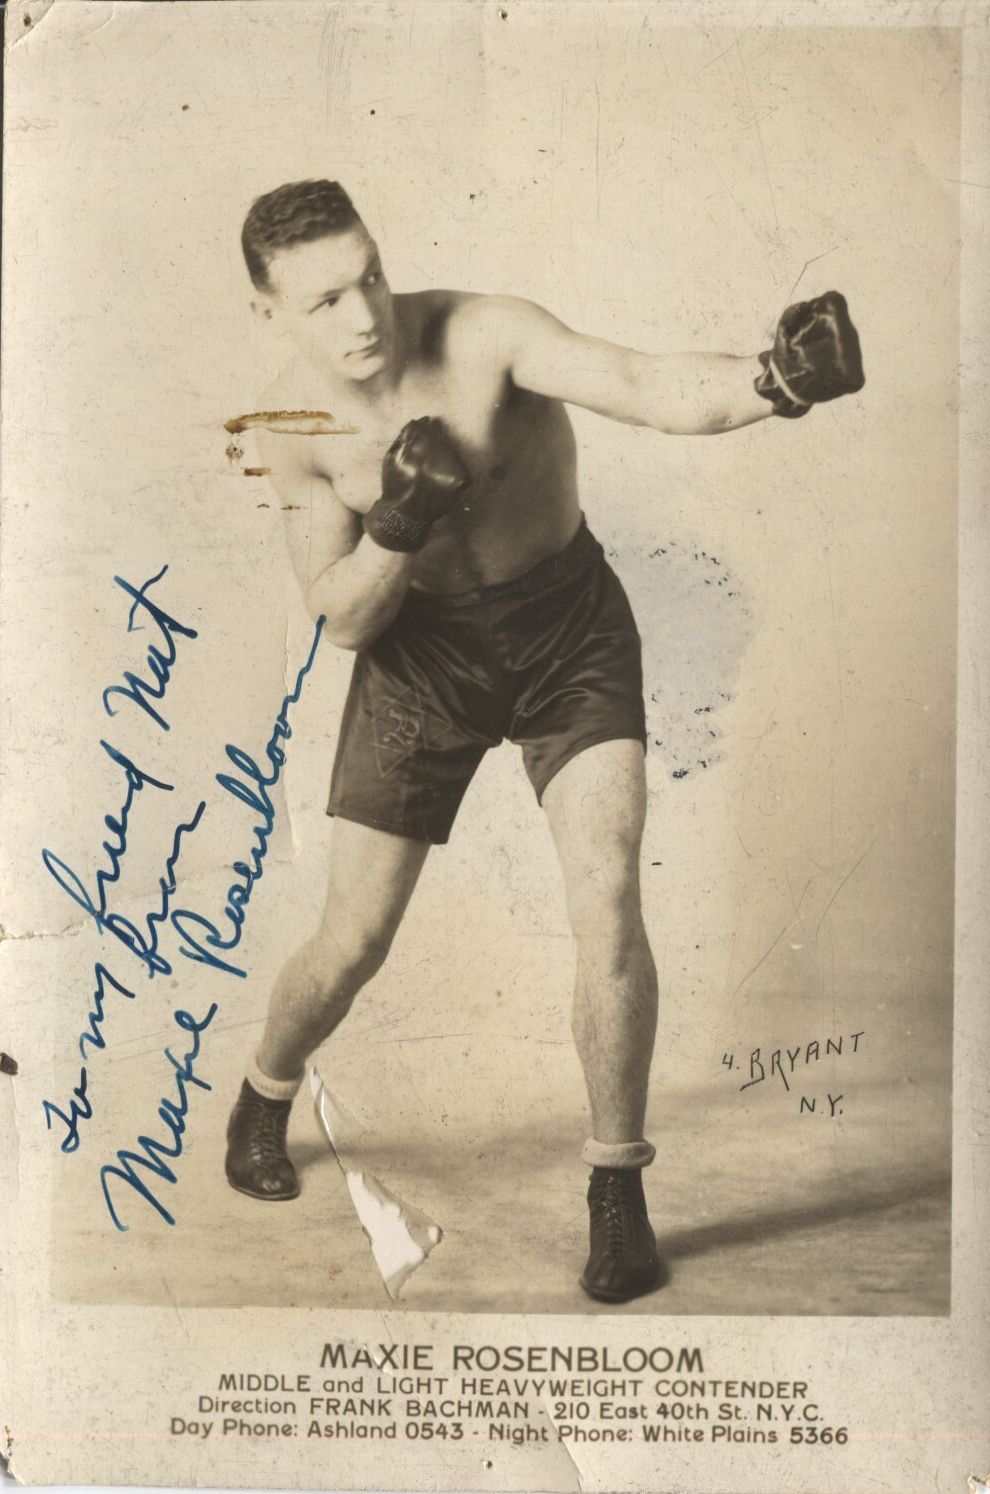 To my friend Nat
from
Maxie Rosenbloom
BRYANT
N.Y.
MAXIE ROSENBLOOM
MIDDLE and LIGHT HEAVYWEIGHT CONTENDER
Direction FRANK BACHMAN - 210 East 40th St. N.Y.C.
Day Phone: Ashland 0543 - Night Phone: White Plains 5366